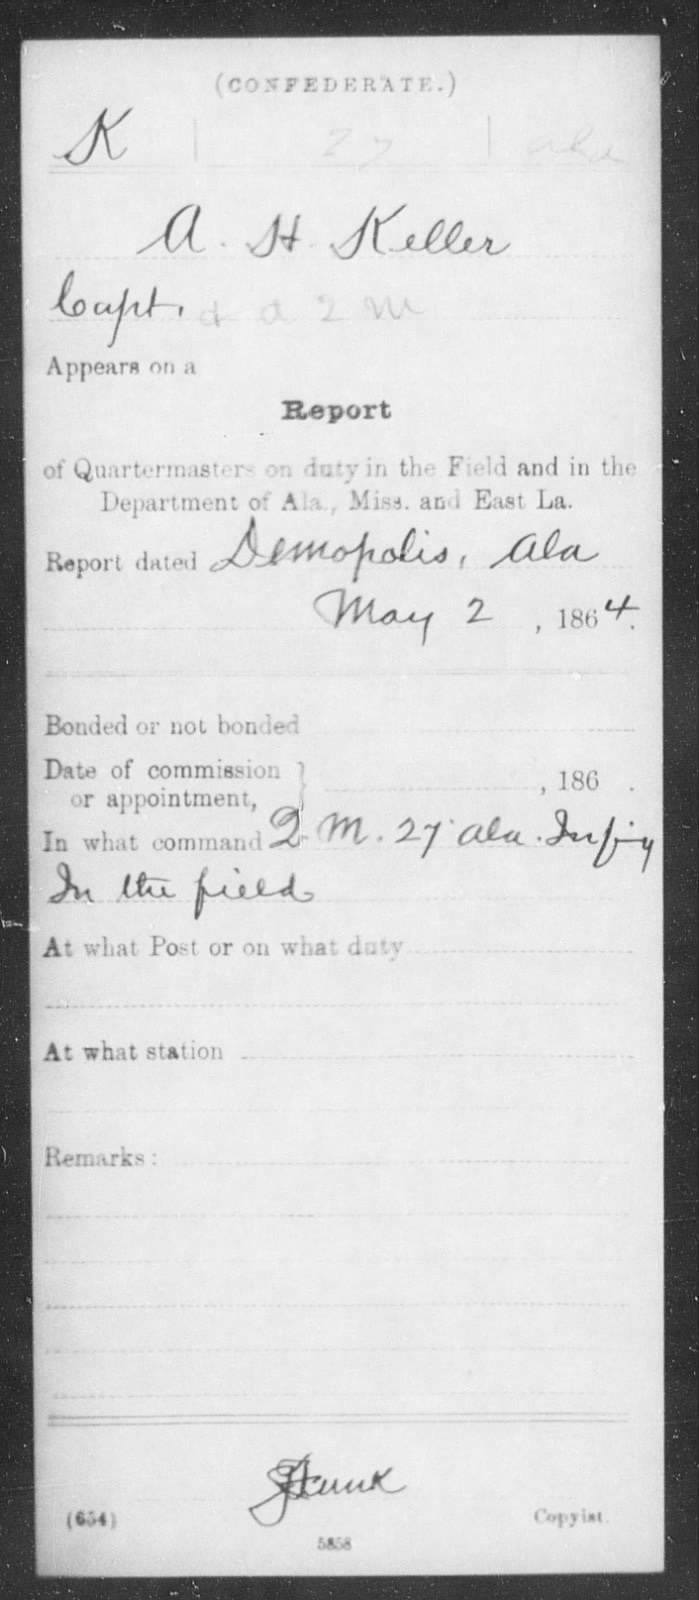 (CONFEDERATE.)
K | 27 | Ala
A. H. Keller
Capt. & a Q M
Appears on a
Report
of Quartermasters on duty in the Field and in the
Department of Ala., Miss. and East La.
Report dated Demopolis, Ala
May 2, 1864.
Bonded or not bonded
Date of commission
or appointment, } , 186 .
In what command Q. M. 27 Ala. Inf'y
In the field
At what Post or on what duty
At what station
Remarks:
(654) Copyist.
5858